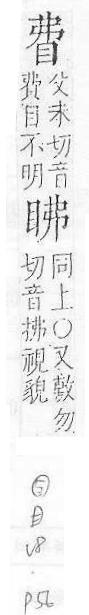 父未切音
費目不明
同上○又敷勿
切音拂視貌
目
P56